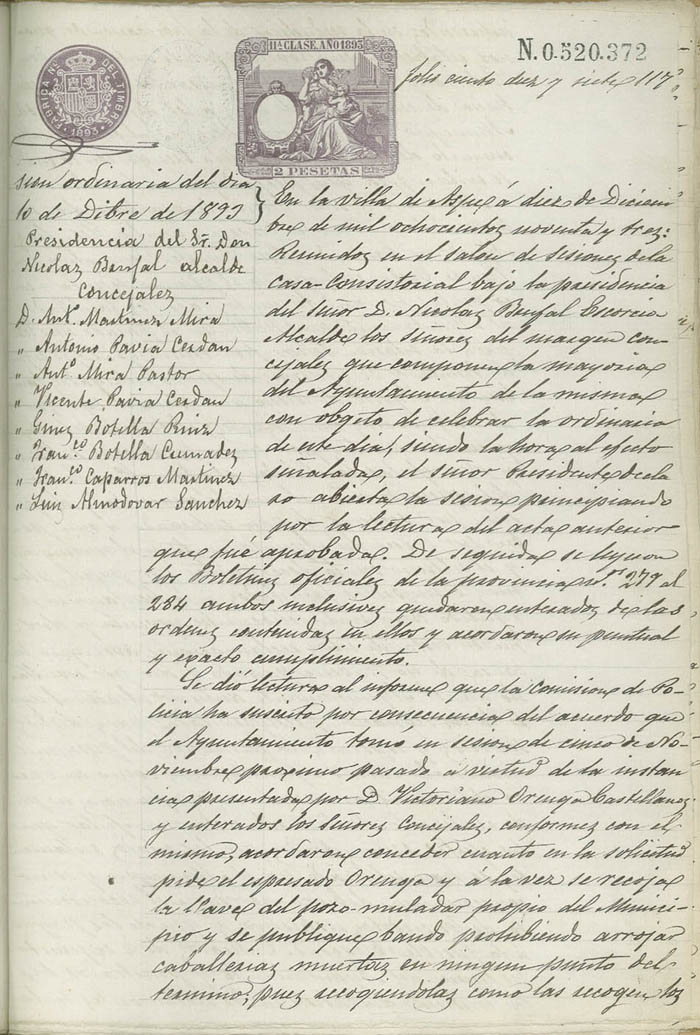 FÁBRICA Nal. DEL TIMBRE
1893
11ª CLASE. AÑO 1893
2 PESETAS
N. 0.520.372
folio ciento diez y siete 117
sion ordinaria del dia
10 de Dibre de 1893
Presidencia del Sr. Don
Nicolaz Berfal alcalde
Concejalez
D. Antº Martinez Mira
" Antonio Pavia Cerdan
" Antº Mira Pastor
" Vicente Pavia Cerdan
" Ginez Botella Ruiz
" Franco Botella
" Franco Caparros Martinez
" Luiz Almodovar Sanchez
En la villa de Aspe á diez de Diciem-
bre de mil ochocientos noventa y trez:
Reunidoz en el salon de sesiones de la
Casa-Consistorial bajo la presidencia
del señor D. Nicolaz Escorcia
Alcalde los señorez del margen con-
cejalez que componen la mayoria
del Ayuntamiento de la misma
con obgeto de celebrar la ordinaria
de este dia, siendo la hora al efecto
senalada, el señor Presidente decla
ro abierta la sesion principiando
por la lectura del acta anterior
que fué aprobada. De seguida se leyeron
los Boletinez oficialez de la provincia nos. 279 al
284 ambos inclusivez quedaron enteradoz de las
ordenez contenidaz en ellos y acordaron su puntual
y exacto cumplimiento.
Se dió lectura al informe que la Comision de Po-
licia ha suscrito por consecuencia del acuerdo que
el Ayuntamiento tomó en sesion de cinco de No-
viembre proximo pasado á virtud de la instan
cia presentada por D. Victoriano Orenga Castellanoz
y enterados los señorez Concejalez, conformez con el
mismo, acordaron conceder cuanto en la solicitud
pide el espresado Orenga y á la vez se recoja
la llave del pozo-muladar propio del Munici-
pio y se publique bando prohibiendo arrojar
caballeriaz muertaz en ningun punto del
termino, puez recogiendolaz como las recogen los